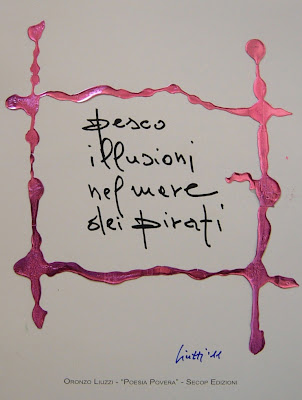 pesco
illusioni
nel mare
dei pirati
Liuzzi '11
ORONZO LIUZZI - "POESIA POVERA" - SECOP EDIZIONI